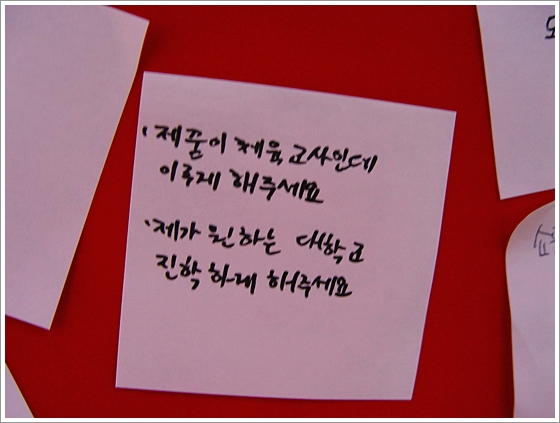 · 제 꿈이 체육 교사인데
이루게 해주세요
· 제가 원하는 대학교
진학 하게 해주세요